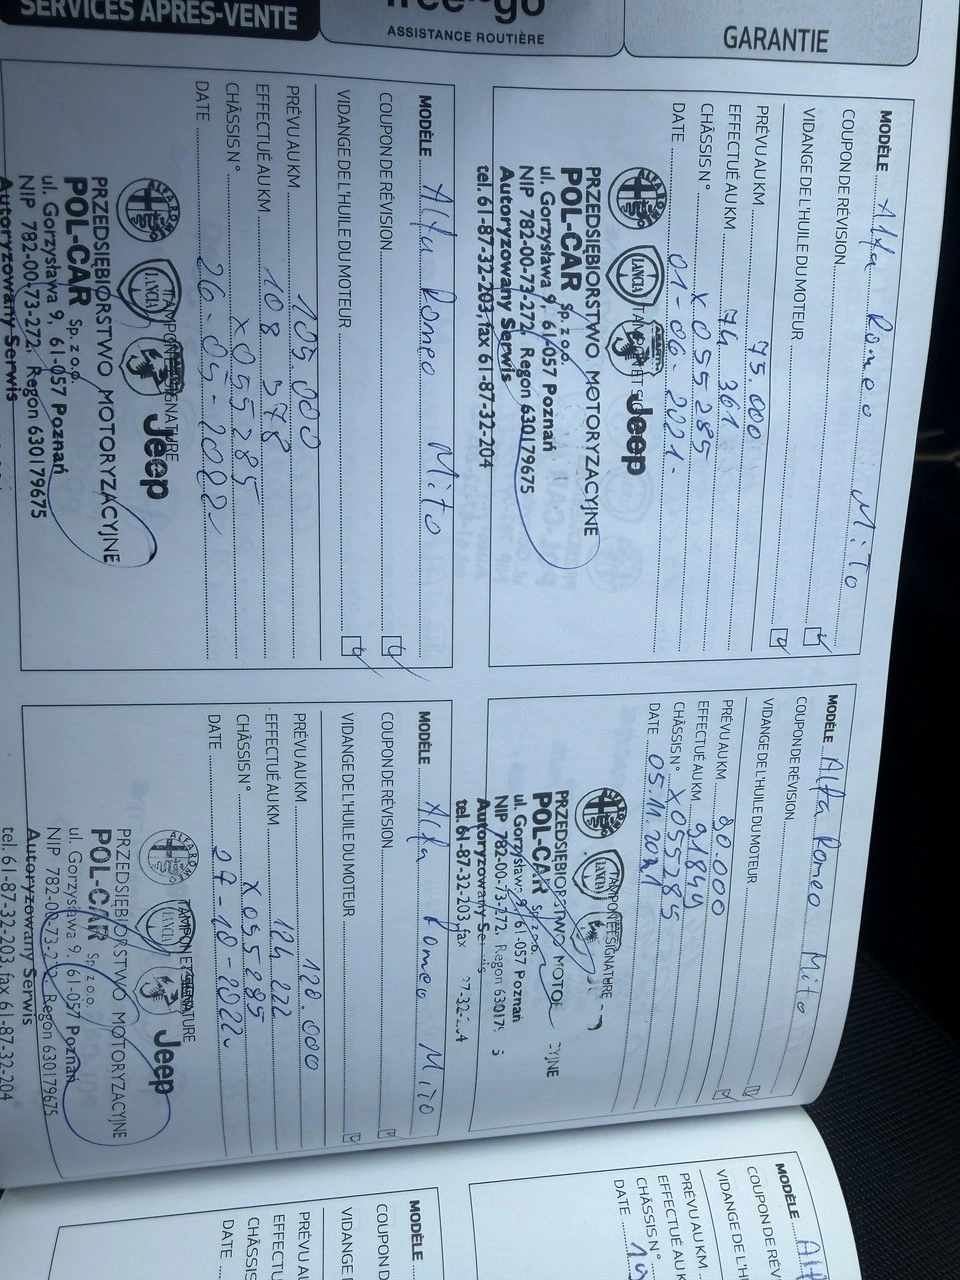 SERVICES APRÈS-VENTE
ASSISTANCE ROUTIÈRE
GARANTIE
MODÈLE Alfa Romeo MiTo
COUPON DE RÉVISION
VIDANGE DE L'HUILE DU MOTEUR
PRÉVU AU KM 75.000
EFFECTUÉ AU KM 74 361
CHÂSSIS N° X055285
DATE 01-06-2021-
TAMPON ET SIG
Jeep
PRZEDSIEBIORSTWO MOTORYZACYJNE
POL-CAR Sp. z o.o.
ul. Gorzysława 9, 61-057 Poznań
NIP 782-00-73-272, Regon 630179675
Autoryzowany Serwis
tel. 61-87-32-203, fax 61-87-32-204
MODÈLE Alfa Romeo Mito
COUPON DE RÉVISION
VIDANGE DE L'HUILE DU MOTEUR
PRÉVU AU KM 90.000
EFFECTUÉ AU KM 91844
CHÂSSIS N° X055285
DATE 05.11.2021
TAMPON ET SIGNATURE
PRZEDSIEBIORSTWO MOTO YJNE
POL-CAR Sp. z o.o.
ul. Gorzysława 9, 61-057 Poznań
NIP 782-00-73-272, Regon 63017 5
Autoryzowany Se
tel. 61-87-32-203, fax 7-32-2 4
MODÈLE Alfa Romeo Mito
COUPON DE RÉVISION
VIDANGE DE L'HUILE DU MOTEUR
PRÉVU AU KM 105.000
EFFECTUÉ AU KM 108 378
CHÂSSIS N° X055285
DATE 26-05-2022
TAMPON SIGNATURE
LANCIA
Jeep
PRZEDSIEBIORSTWO MOTORYZACYJNE
POL-CAR Sp. z o.o.
ul. Gorzysława 9, 61-057 Poznań
NIP 782-00-73-272, Regon 630179675
Autoryzowany Serwis
MODÈLE Alfa Romeo Mito
COUPON DE RÉVISION
VIDANGE DE L'HUILE DU MOTEUR
PRÉVU AU KM 120.000
EFFECTUÉ AU KM 124 222
CHÂSSIS N° X055285
DATE 27-10-2022
TAMPON ET SIGNATURE
LANCIA
Jeep
PRZEDSIEBIORSTWO MOTORYZACYJNE
POL-CAR Sp. z o.o.
ul. Gorzysława 9, 61-057 Poznań
NIP 782-00-73-2 Regon 630179675
Autoryzowany Serwis
tel. 61-87-32-203, fax 61-87-32-204
MODÈLE Alf
COUPON DE RÉV
VIDANGE DE L'H
PRÉVU AU KM
EFFECTUÉ AU K
CHÂSSIS N°
DATE
MODÈLE
COUPON D
VIDANGE
PRÉVU AU
EFFECTU
CHÂSS
DATE